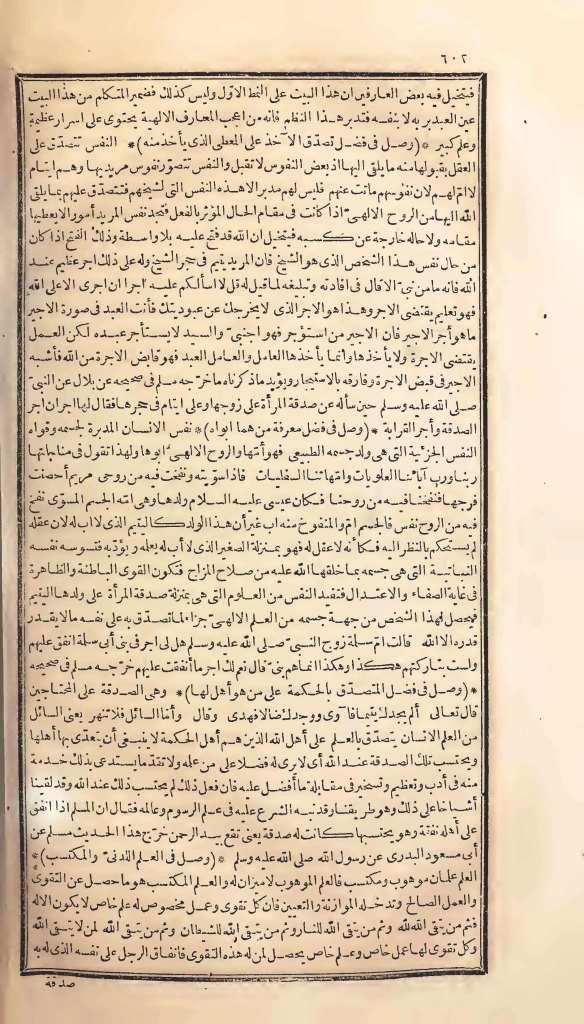 ٦٠٢
فيتخيل فيه بعض العارفين ان هذا البيت على النمط الاول وليس كذلك فضمير المتكلم من هذا البيت
عين العبد بربه لا بنفسه فتدبر هذا النظم فانه من اعجب المعارف الالهية يحتوى على اسرار عظيمة
وعلم كبير * (وصل فى فضل تصدق الآخذ على المعطى الذى يأخذ منه) * النفس تتصدق على
العقل بقبولها منه ما يلقى اليها اذ بعض النفوس لا تقبل والنفس تتصور نفوس مريديها وهم ايتام
لا ام لهم لان نفوسهم ماتت عنهم فليس لهم مدبر الا هذه النفس التى لشيخهم فتتصدق عليهم بما يلقى
الله اليها من الروح الالهى اذا كانت فى مقام الحال المؤثر بالفعل فتجد نفس المريد أمورا لا يعطيها
مقامه ولا حاله خارجة عن كسبه فيتخيل ان الله قد فتح عليه بلا واسطة وذلك الفتح اذا كان
من حال نفس هذا الشخص الذى هو الشيخ فان المريد يتيم فى حجر الشيخ وله على ذلك اجر عظيم عند
الله فانه ما من نبى الا قال فى افادته وتبليغه لما قيل له قل لا اسألكم عليه اجرا ان اجرى الا على الله
فهو تعليم يقتضى الاجر وهذا هو الاجر الذى لا يخرجك عن عبوديتك فأنت العبد فى صورة الاجير
ما هو أجر الاجير فان الاجير من استؤجر فهو اجنبى والسيد لا يستأجر عبده لكن العمل
يقتضى الاجرة ولا يأخذها وانما يأخذها العامل والعامل العبد فهو قابض الاجرة من الله فأشبه
الاجير فى قبض الاجرة وفارقه بالاستيجار ويؤيد ما ذكرناه ما خرجه مسلم فى صحيحه عن بلال عن النبى
صلى الله عليه وسلم حين سأله عن صدقة المرأة على زوجها وعلى ايتام فى حجرها فقال لها اجران اجر
الصدقة وأجر القرابة * (وصل فى فضل معرفة من هما ابواه) * نفس الانسان المدبرة لجسمه وقواه
النفس الجزئية التى هى ولد جسمه الطبيعى فهو أمها والروح الالهى ابوها ولهذا تقول فى مناجاتها
ربنا ورب آبائنا العلويات وامهاتنا السفليات فاذا سويته ونفخت فيه من روحى مريم أحصنت
فرجها فنفخنا فيه من روحنا فكان عيسى عليه السلام ولدها وهى امه الجسم المسوى نفخ
فيه من الروح نفس فالجسم ام والمنفوخ منه اب غير أن هذا الولد كاليتيم الذى لا اب له لان عقله
لم يستحكم بالنظر اليه فكأنه لا عقل له فهو بمنزلة الصغير الذى لا أب له يعلمه ويؤدبه فتسوسه نفسه
النباتية التى هى جسمه بما خلقها الله عليه من صلاح المزاج فتكون القوى الباطنة والظاهرة
فى غاية الصفاء والاعتدال فتفيد النفس من العلوم التى هى بمنزلة صدقة المرأة على ولدها اليتيم
فيحصل لهذا الشخص من جهة جسمه من العلم الالهى جزاء لما تصدق به على نفسه ما لا يقدر
قدره الا الله قالت ام سلمة زوج النبى صلى الله عليه وسلم هل لى اجر فى بنى أبى سلمة انفق عليهم
ولست بتاركتهم هكذا وهكذا انما هم بنى قال نعم لك اجر ما أنفقت عليهم خرجه مسلم فى صحيحه
* (وصل فى فضل المتصدق بالحكمة على من هو أهل لها) * وهى الصدقة على المحتاجين
قال تعالى ألم يجدك يتيما فآوى ووجدك ضالا فهدى وقال وأما السائل فلا تنهر يعنى السائل
من العلم الانسان يتصدق بالعلم على أهل الله الذين هم أهل الحكمة لا ينبغى أن يتعدى بها أهلها
ويحتسب تلك الصدقة عند الله أى لا يرى له فضلا على من علمه ولا تقدما يستدعى بذلك خدمة
منه فى أدب وتعظيم وتسخير فى مقابلة ما أفضل عليه فان فعل ذلك لم يحتسب ذلك عند الله وقد لقينا
أشياخا على ذلك وهو طريقتنا وقد نبه الشرع عليه فى علم الرسوم وعالمه فقال ان المسلم اذا انفق
على أهله نفقة وهو يحتسبها كانت له صدقة يعنى تقع بيد الرحمن خرج هذا الحديث مسلم عن
أبى مسعود البدرى عن رسول الله صلى الله عليه وسلم * (وصل فى العلم اللدنى والمكتسب) *
العلم علمان موهوب ومكتسب فالعلم الموهوب لا ميزان له والعلم المكتسب هو ما حصل عن التقوى
والعمل الصالح وتدخله الموازنة والتعيين فان كل تقوى وعمل مخصوص له علم خاص لا يكون الا له
فثم من يتقى الله لله وثم من يتقى الله للنار وثم من يتقى الله للشيطان وثم من يتقى الله لمن لا يتقى الله
وكل تقوى لها عمل خاص وعلم خاص يحصل لمن له هذه التقوى فانفاق الرجل على نفسه الذى له به
صدقة